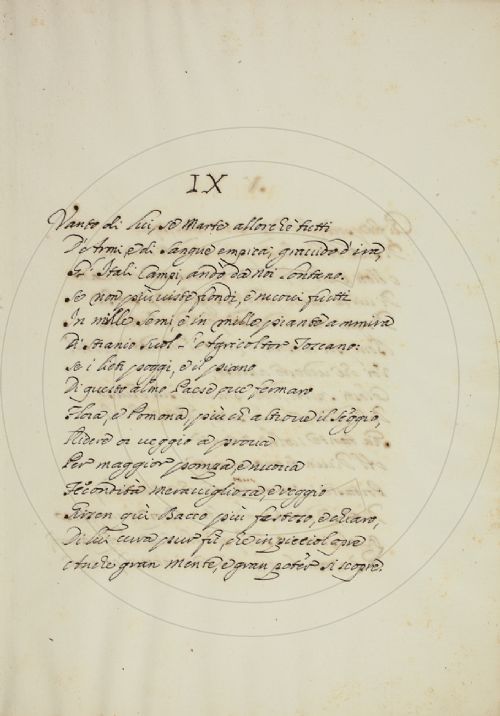 IX
Vanto di lui, se Marte allor che tutti
D'Armi, e di Sangue empiea, gravido d'ira,
Gl'Itali Campi, andò da noi lontano.
Se non più viste frondi, e nuovi frutti
In mille Semi e in mille piante ammira
Di Stranio Suol l'Agricoltor Toscano:
Se i lieti poggi, e il piano
Di questo almo Paese più fermaro
Flora, e Pomona, più ch'altrove il Seggio,
Ridere or veggio a prova
Per maggior pompa, e nuova
Fecondità meravigliosa, e veggio
Girsen quì Bacco più festoso, e chiaro,
Di lui cura pur fù, che in picciol opre
Anche gran Mente, e gran potèr si scopre.